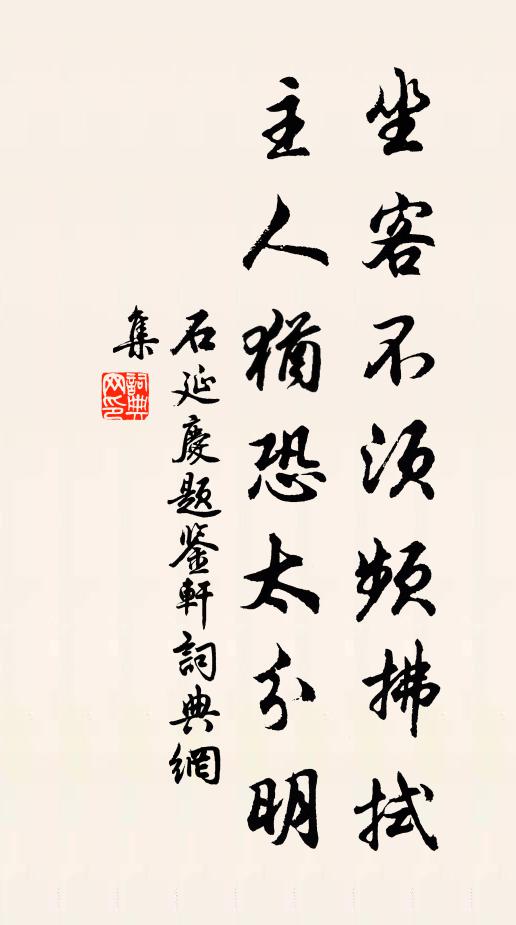 坐客不须频拂拭
主人犹恐太分明
石延慶题鉴軒詞典網
集
詞典
网印